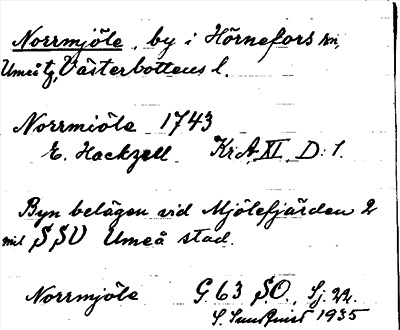 Norrmjöle, by i Hörnefors sn,
Umeå tg, Västerbottens l.
Norrmiöle 1743
E. Hackzell KrA XI D: 1.
Byn belägen vid Mjölefjärden 2
mil SSV Umeå stad.
Norrmjöle G. 63 SO., Sj. 22.
S. Sundquist 1935